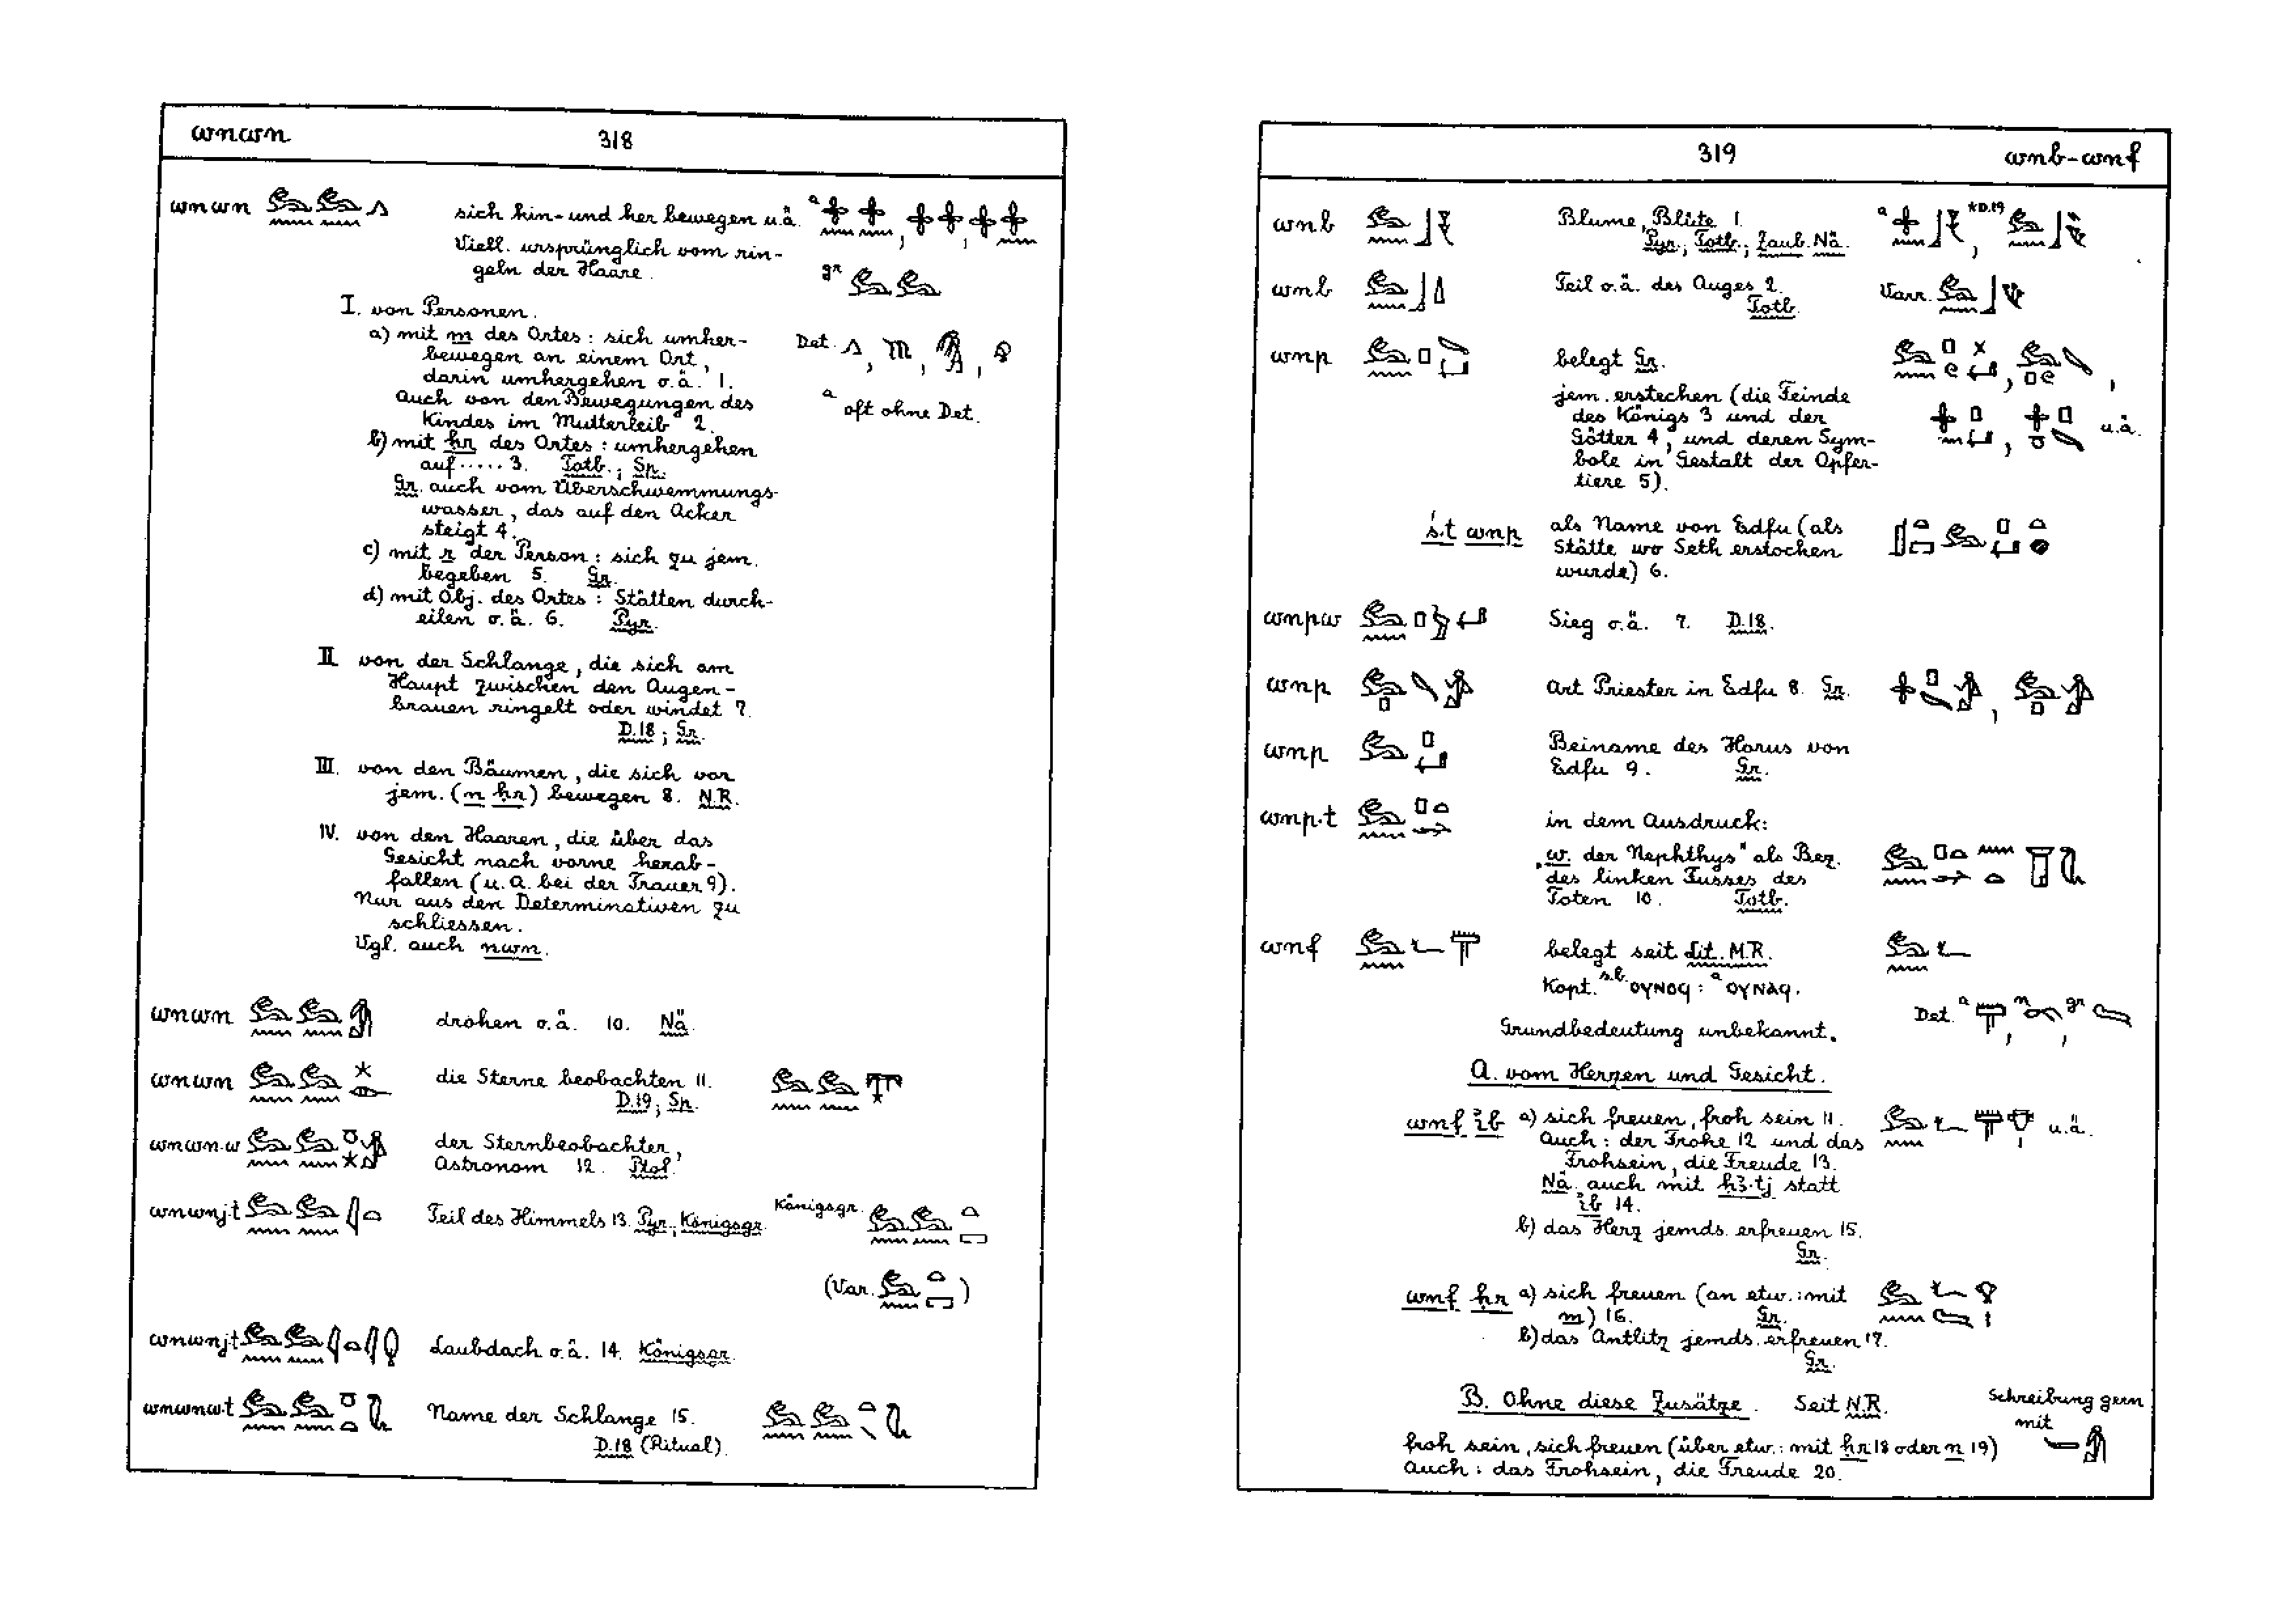 wnwn 318
wnwn sich hin- und her bewegen u.ä. a
Viell. ursprünglich vom rin-
geln der Haare. gr
I. von Personen.
a) mit m des Ortes: sich umher-
bewegen an einem Ort,
darin umhergehen o.ä. 1.
Det.
Auch von den Bewegungen des
Kindes im Mutterleib 2.
a oft ohne Det.
b) mit ḥr des Ortes: umhergehen
auf ..... 3. Totb.; Sp.
Gr. auch vom Überschwemmungs-
wasser, das auf den Acker
steigt 4.
c) mit r der Person: sich zu jem.
begeben 5. Gr.
d) mit Obj. des Ortes: Stätten durch-
eilen o.ä. 6. Pyr.
II. von der Schlange, die sich am
Haupt zwischen den Augen-
brauen ringelt oder windet 7.
D.18; Gr.
III. von den Bäumen, die sich vor
jem. (n ḥr) bewegen 8. N.R.
IV. von den Haaren, die über das
Gesicht nach vorne herab-
fallen (u.a. bei der Trauer 9).
Nur aus den Determinativen zu
schliessen.
Vgl. auch nwn.
wnwn drohen o.ä. 10. Nä.
wnwn die Sterne beobachten 11.
D.19; Sp.
wnwn.w der Sternbeobachter,
Astronom 12. Ptol.
wnwnj.t Teil des Himmels 13. Pyr., Königsgr. Königsgr.
(Var. )
wnwnj.t Laubdach o.ä. 14. Königsgr.
wnwnw.t Name der Schlange 15.
D.18 (Ritual).
319 wnb-wnf
wnb Blume, Blüte 1. a *D.19
Pyr.; Totb.; Zaub. Nä.
wnb Teil o.ä. des Auges 2. Varr.
Totb.
wnp belegt Gr.
jem. erstechen (die Feinde
des Königs 3 und der
Götter 4, und deren Sym-
bole in Gestalt der Opfer-
tiere 5).
u.ä.
ś.t wnp als Name von Edfu (als
Stätte wo Seth erstochen
wurde) 6.
wnpw Sieg o.ä. 7. D.18.
wnp Art Priester in Edfu 8. Gr.
wnp Beiname des Horus von
Edfu 9. Gr.
wnp.t in dem Ausdruck:
„w. der Nephthys" als Bez.
des linken Fusses des
Toten 10. Totb.
wnf belegt seit Lit. M.R.
Kopt. s.b. ⲟⲩⲛⲟϥ : a ⲟⲩⲛⲁϥ.
Det. a , n , gr
Grundbedeutung unbekannt.
A. vom Herzen und Gesicht.
wnf ỉb a) sich freuen, froh sein 11. u.ä.
Auch: der Frohe 12 und das
Frohsein, die Freude 13.
Nä. auch mit ḥꜣ.tj statt
ỉb 14.
b) das Herz jemds. erfreuen 15.
Gr.
wnf ḥr a) sich freuen (an etw.: mit
m) 16. Gr.
b) das Antlitz jemds. erfreuen 17.
Gr.
B. Ohne diese Zusätze. Seit N.R. Schreibung gern
mit
froh sein, sich freuen (über etw.: mit ḥr 18 oder n 19)
Auch: das Frohsein, die Freude 20.